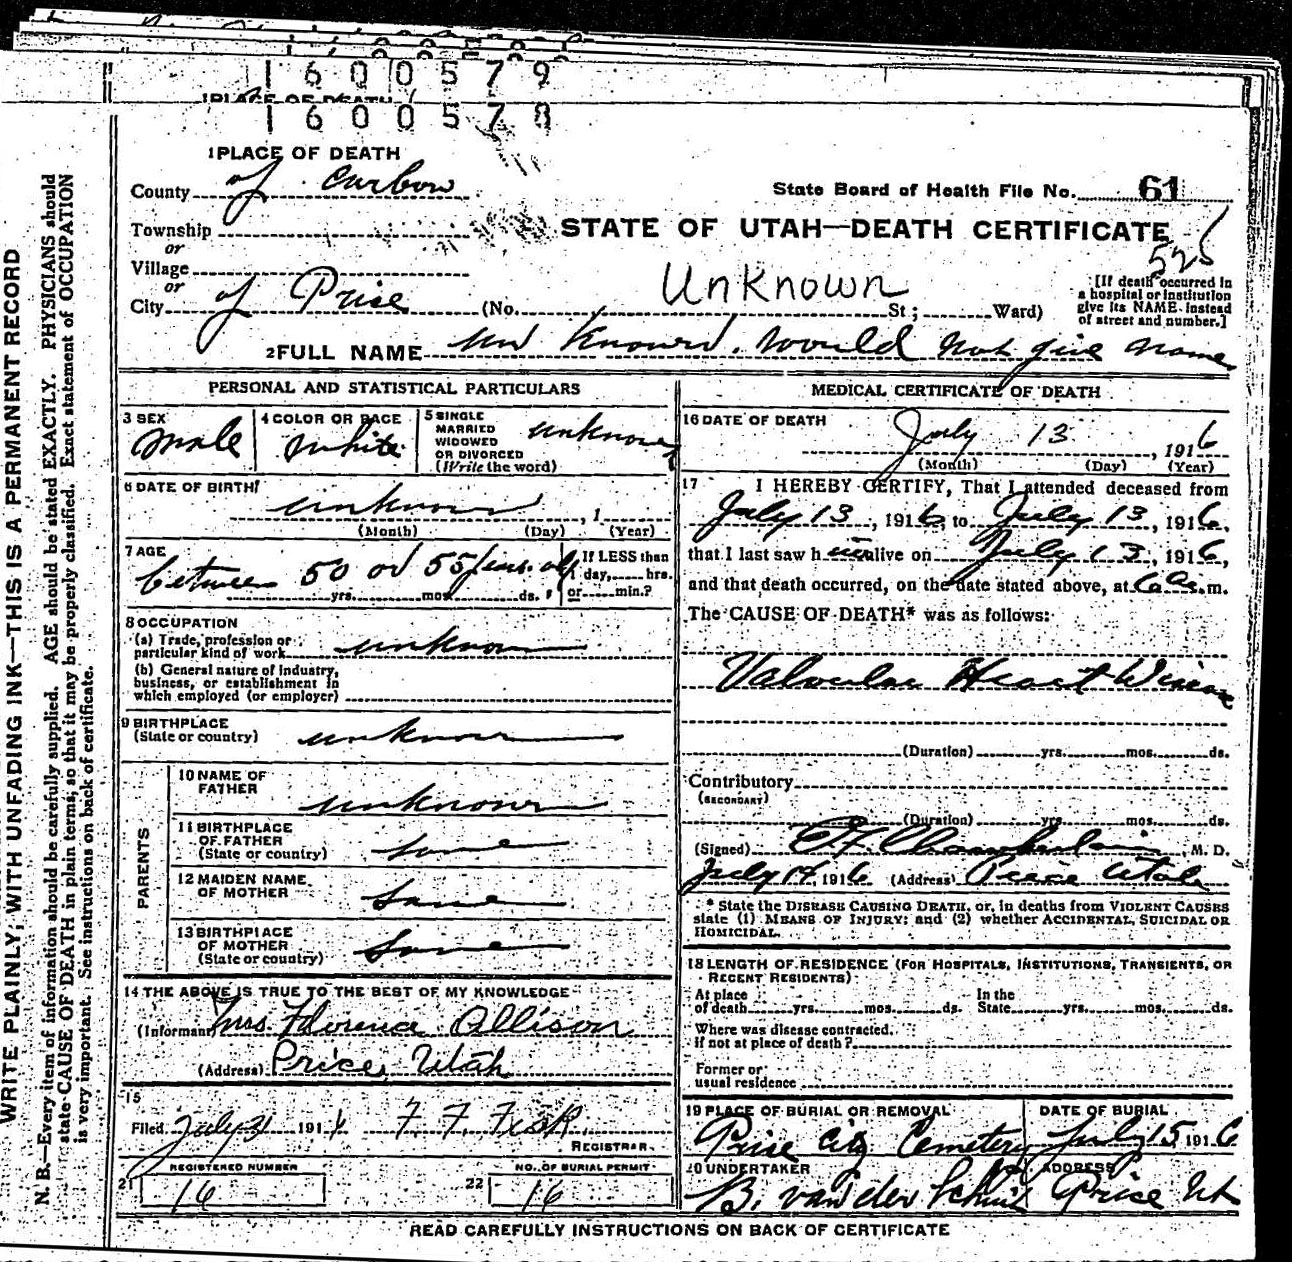 1600579
1PLACE OF DEATH
1600578
1PLACE OF DEATH
County of Carbon
State Board of Health File No. 61
Township
or
STATE OF UTAH—DEATH CERTIFICATE
525
Village
or
City of Price (No. Unknown St; Ward)
[If death occurred in
a hospital or institution
give its NAME instead
of street and number.]
2FULL NAME un Known. Would not give name
PERSONAL AND STATISTICAL PARTICULARS
3 SEX
Male
4 COLOR OR RACE
white
5 SINGLE
MARRIED
WIDOWED
OR DIVORCED
(Write the word)
unknown
6 DATE OF BIRTH
unknown , 1
(Month) (Day) (Year)
7 AGE
between 50 or 55 years old
yrs. mos. ds.
If LESS than
1 day, hrs.
or min.?
8 OCCUPATION
(a) Trade, profession or
particular kind of work unknown
(b) General nature of industry,
business, or establishment in
which employed (or employer)
9 BIRTHPLACE
(State or country) unknown
PARENTS
10 NAME OF
FATHER unknown
11 BIRTHPLACE
OF FATHER
(State or country) same
12 MAIDEN NAME
OF MOTHER same
13 BIRTHPLACE
OF MOTHER
(State or country) same
14 THE ABOVE IS TRUE TO THE BEST OF MY KNOWLEDGE
(Informant) Mrs Florence Allison
(Address) Price, Utah
15
Filed July 31 191
REGISTRAR.
REGISTERED NUMBER
21 16
NO. OF BURIAL PERMIT
22 16
MEDICAL CERTIFICATE OF DEATH
16 DATE OF DEATH
July 13 , 1916
(Month) (Day) (Year)
17 I HEREBY CERTIFY, That I attended deceased from
July 13, 1916, to July 13, 1916,
that I last saw him alive on July 13, 1916,
and that death occurred, on the date stated above, at 6 a.m.
The CAUSE OF DEATH* was as follows:
Valvular Heart Disease
(Duration) yrs. mos. ds.
Contributory
(SECONDARY)
(Duration) yrs. mos. ds.
(Signed) Chamberlain, M. D.
July 14, 1916 (Address) Price Utah
* State the DISEASE CAUSING DEATH, or, in deaths from VIOLENT CAUSES
state (1) MEANS OF INJURY; and (2) whether ACCIDENTAL, SUICIDAL OR
HOMICIDAL.
18 LENGTH OF RESIDENCE (FOR HOSPITALS, INSTITUTIONS, TRANSIENTS, OR
RECENT RESIDENTS)
At place
of death yrs. mos. ds.
In the
State yrs. mos. ds.
Where was disease contracted.
If not at place of death?
Former or
usual residence
19 PLACE OF BURIAL OR REMOVAL
Price City Cemetery
DATE OF BURIAL
July 15 1916
20 UNDERTAKER
B. van der
ADDRESS
Price Ut
READ CAREFULLY INSTRUCTIONS ON BACK OF CERTIFICATE
WRITE PLAINLY, WITH UNFADING INK—THIS IS A PERMANENT RECORD
N. B.—Every item of information should be carefully supplied. AGE should be stated EXACTLY. PHYSICIANS should
state CAUSE OF DEATH in plain terms, so that it may be properly classified. Exact statement of OCCUPATION
is very important. See instructions on back of certificate.